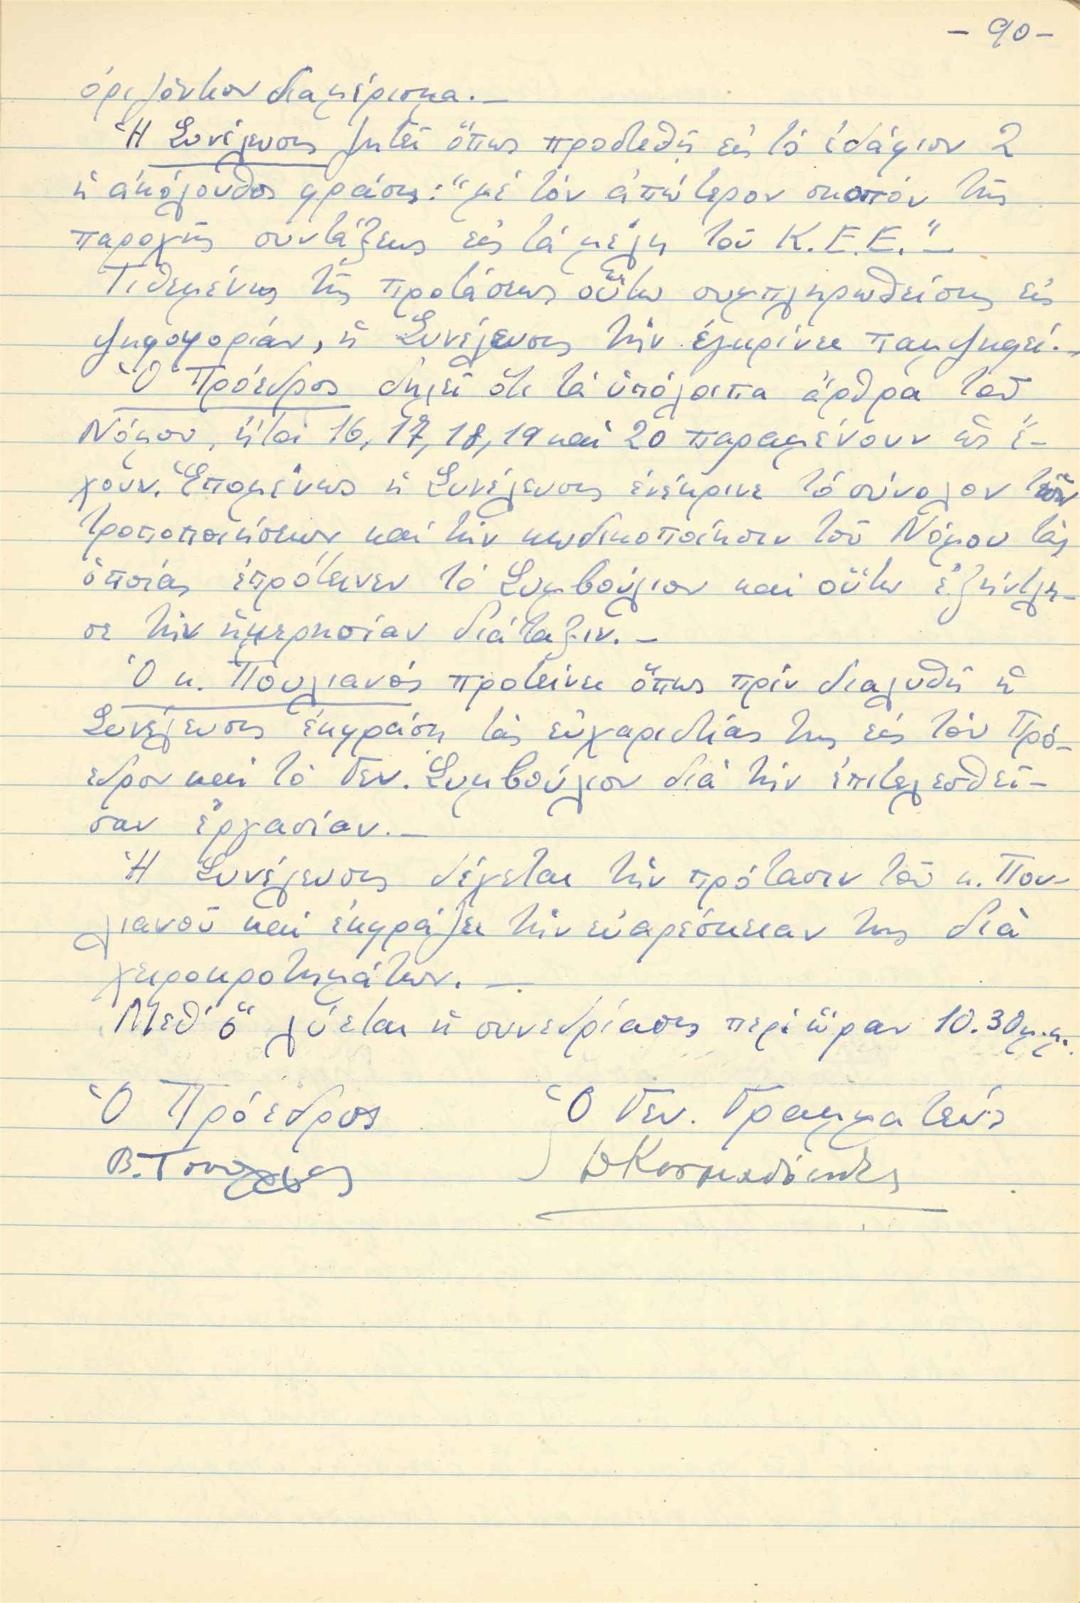 - 90 -
ὁριζόντιον διαμέρισμα.—
Ἡ Συνέλευσις ζητεῖ ὅπως προστεθῇ εἰς τὸ ἐδάφιον 2
ἡ ἀκόλουθος φράσις: "μὲ τὸν ἀπώτερον σκοπὸν τῆς
παροχῆς συντάξεως εἰς τὰ μέλη τοῦ Κ.Ε.Ε."—
Τιθεμένης τῆς προτάσεως οὕτω συμπληρωθείσης εἰς
ψηφοφορίαν, ἡ Συνέλευσις τὴν ἐγκρίνει παμψηφεί.—
Ὁ Πρόεδρος δηλεῖ ὅτι τὰ ὑπόλοιπα ἄρθρα τοῦ
Νόμου, ἤτοι 16, 17, 18, 19 καὶ 20 παραμένουν ὡς ἔ-
χουν. Ἑπομένως ἡ Συνέλευσις ἐνέκρινε τὸ σύνολον τῶν
τροποποιήσεων καὶ τὴν κωδικοποίησιν τοῦ Νόμου τὰς
ὁποίας ἐπρότεινεν τὸ Συμβούλιον καὶ οὕτω ἐξήντλη-
σε τὴν ἡμερησίαν διάταξιν.—
Ὁ κ. Πουλιανός προτείνει ὅπως πρὶν διαλυθῇ ἡ
Συνέλευσις ἐκφράσῃ τὰς εὐχαριστίας της εἰς τὸν Πρό-
εδρον καὶ τὸ Γεν. Συμβούλιον διὰ τὴν ἐπιτελεσθεῖ-
σαν ἐργασίαν.—
Ἡ Συνέλευσις δέχεται τὴν πρότασιν τοῦ κ. Που-
λιανοῦ καὶ ἐκφράζει τὴν εὐαρέσκειαν της διὰ
χειροκροτημάτων.—
Μεθ' ὃ λύεται ἡ συνεδρίασις περὶ ὥραν 10.30 μ.μ.
Ὁ Πρόεδρος Ὁ Γεν. Γραμματεύς
Β.